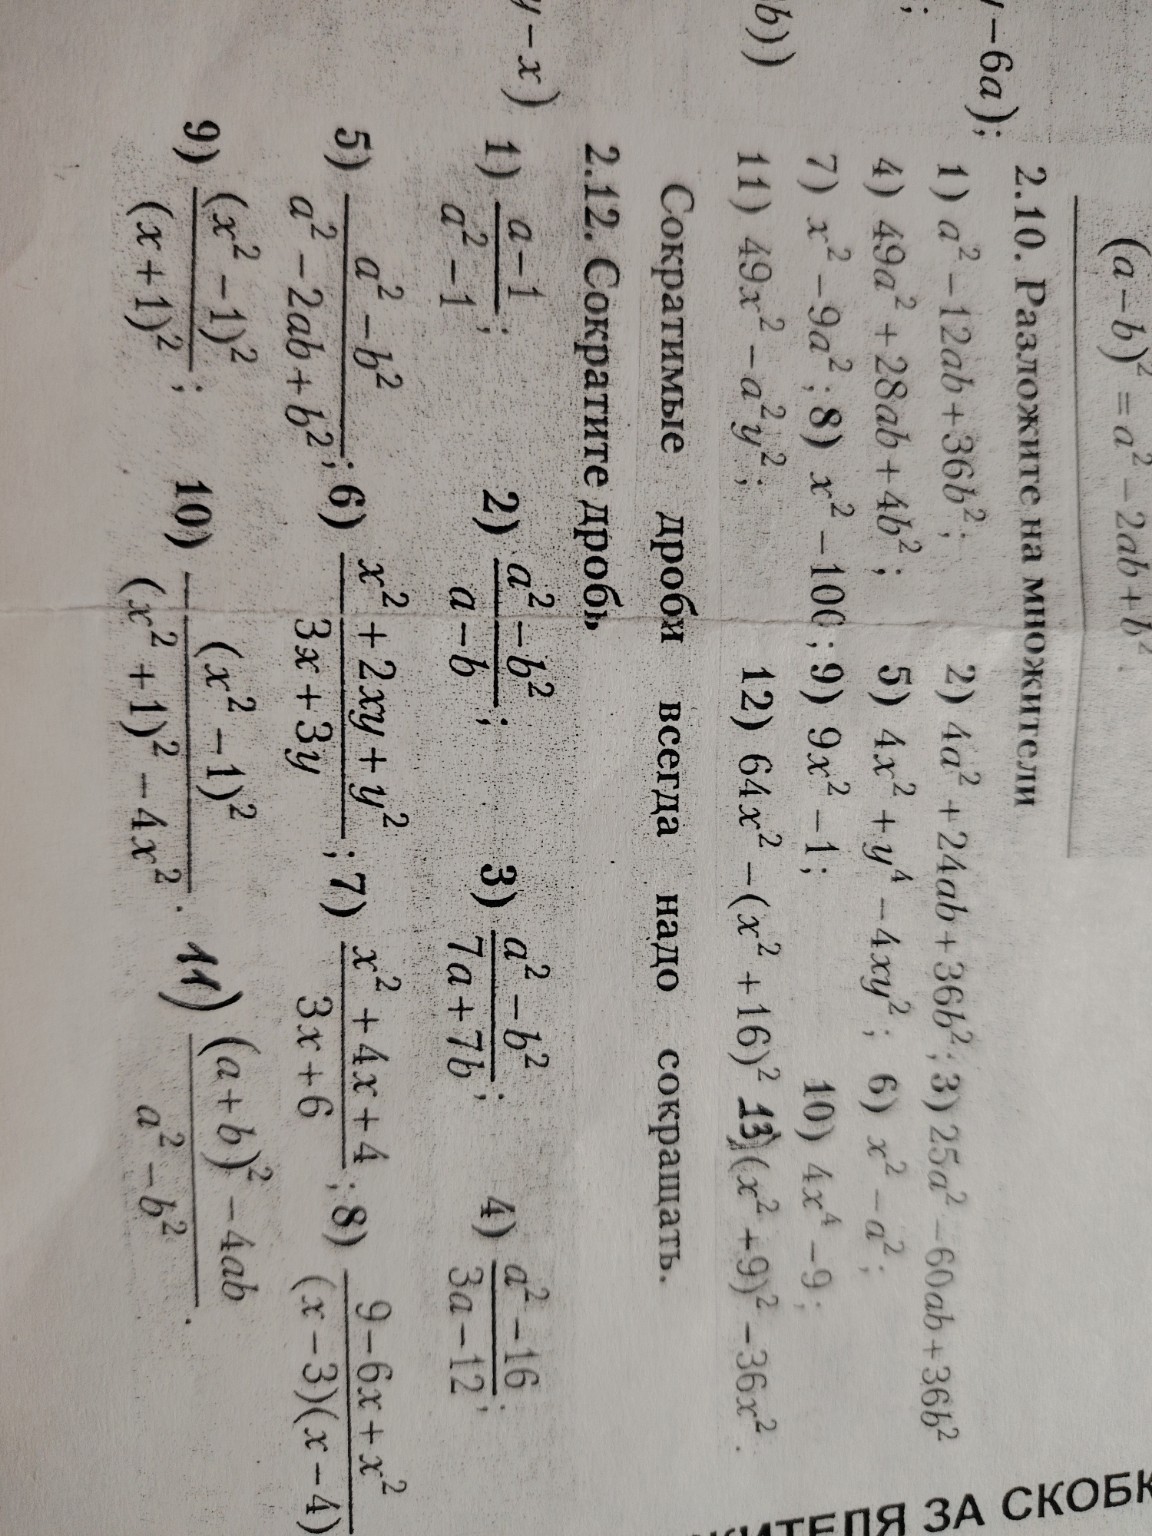 (a−b)² = a² − 2ab + b².
y−6a);
;
b))
y−x)
2.10. Разложите на множители
1) a² −12ab+36b²; 2) 4a² +24ab+36b²; 3) 25a² −60ab+36b²
4) 49a² +28ab+4b²; 5) 4x² +y⁴ −4xy²; 6) x² −a²;
7) x² −9a²; 8) x² −100; 9) 9x² −1; 10) 4x⁴ −9;
11) 49x² −a²y²; 12) 64x² −(x² +16)² 13) (x² +9)² −36x².
Сократимые дроби всегда надо сокращать.
2.12. Сократите дробь
1) (a−1)/(a² −1); 2) (a² −b²)/(a−b); 3) (a² −b²)/(7a+7b); 4) (a² −16)/(3a−12);
5) (a² −b²)/(a² −2ab+b²); 6) (x² +2xy+y²)/(3x+3y); 7) (x² +4x+4)/(3x+6); 8) (9−6x+x²)/((x−3)(x−4))
9) (x² −1)²/(x+1)²; 10) (x² −1)²/((x² +1)² −4x²). 11) ((a+b)² −4ab)/(a² −b²).
ЗА СКОБК